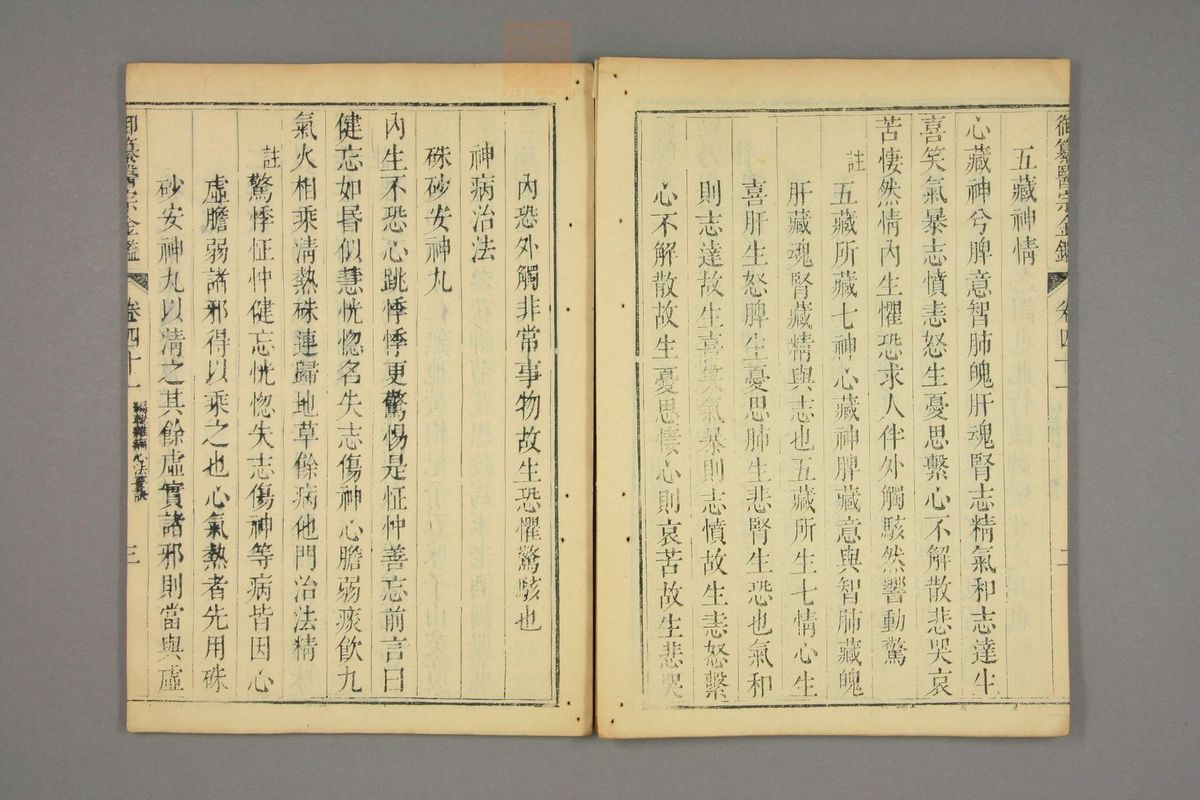 御纂醫宗金鑑 卷四十一 二
五藏神情
心藏神兮脾意智肺魄肝魂腎志精氣和志達生
喜笑氣暴志憤恚怒生憂思繫心不解散悲哭哀
苦悽然情內生懼恐求人伴外觸駭然響動驚
註
五藏所藏七神心藏神脾藏意與智肺藏魄
肝藏魂腎藏精與志也五藏所生七情心生
喜肝生怒脾生憂思肺生悲腎生恐也氣和
則志達故生喜笑氣暴則志憤故生恚怒繫
心不解散故生憂思悽心則哀苦故生悲哭
內恐外觸非常事物故生恐懼驚駭也
神病治法
硃砂安神丸
內生不恐心跳悸悸更驚惕是怔忡善忘前言曰
健忘如昬似慧恍惚名失志傷神心膽弱痰飲九
氣火相乘淸熱硃連歸地草餘病他門治法精
註
驚悸怔忡健忘恍惚失志傷神等病皆因心
虛膽弱諸邪得以乘之也心氣熱者先用硃
砂安神丸以淸之其餘虛實諸邪則當與虛
御纂醫宗金鑑 卷四十一 編輯雜病心法要訣 三